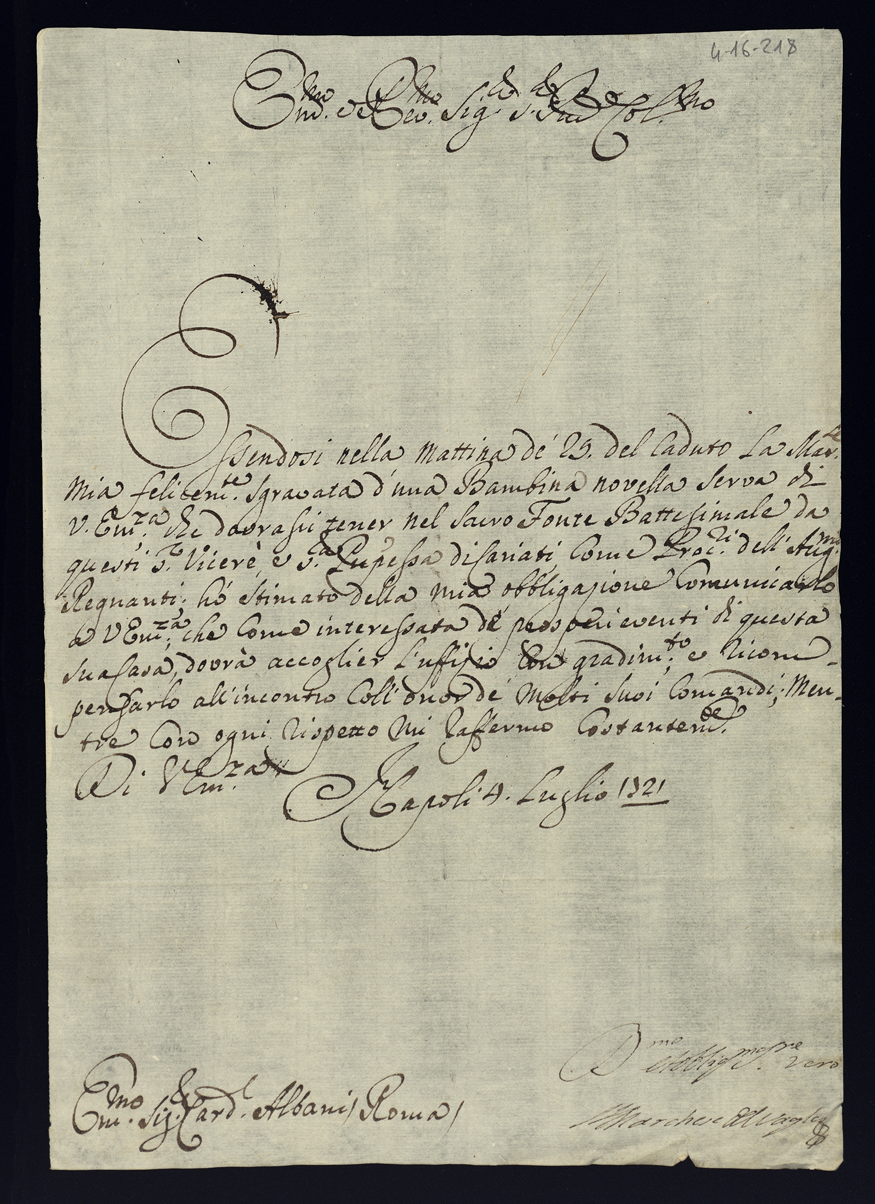 4-16-218
Em.mo e Rev.mo Sig.r Col.mo
Essendosi nella Mattina de' 29. del Caduto La Mar.
mia felicem.te sgravata d'una Bambina novella serva di
V. Em.za, che dovrassi tener nel Sacro Fonte Battesimale da
questi S.ri Vicerè, e Come Proc.ri dell' Aug.mi
Regnanti; hò stimato della mia obbligazione Comunicarlo
a V Em.za; che Come interessata de prosperi eventi di questa
sua Casa, dovrà accoglier l'uffizio Con gradim.to e ricom-
pensarlo all'incontro Coll' onor de molti suoi Comandi; Men-
tre Con ogni rispetto mi raffermo Costantem.te
Di V Em.za
Napoli 4. Luglio 1721
D.mo et obblig.mo vero
Em.mo Sig.r Card.l Albani / Roma /
Il Marchese